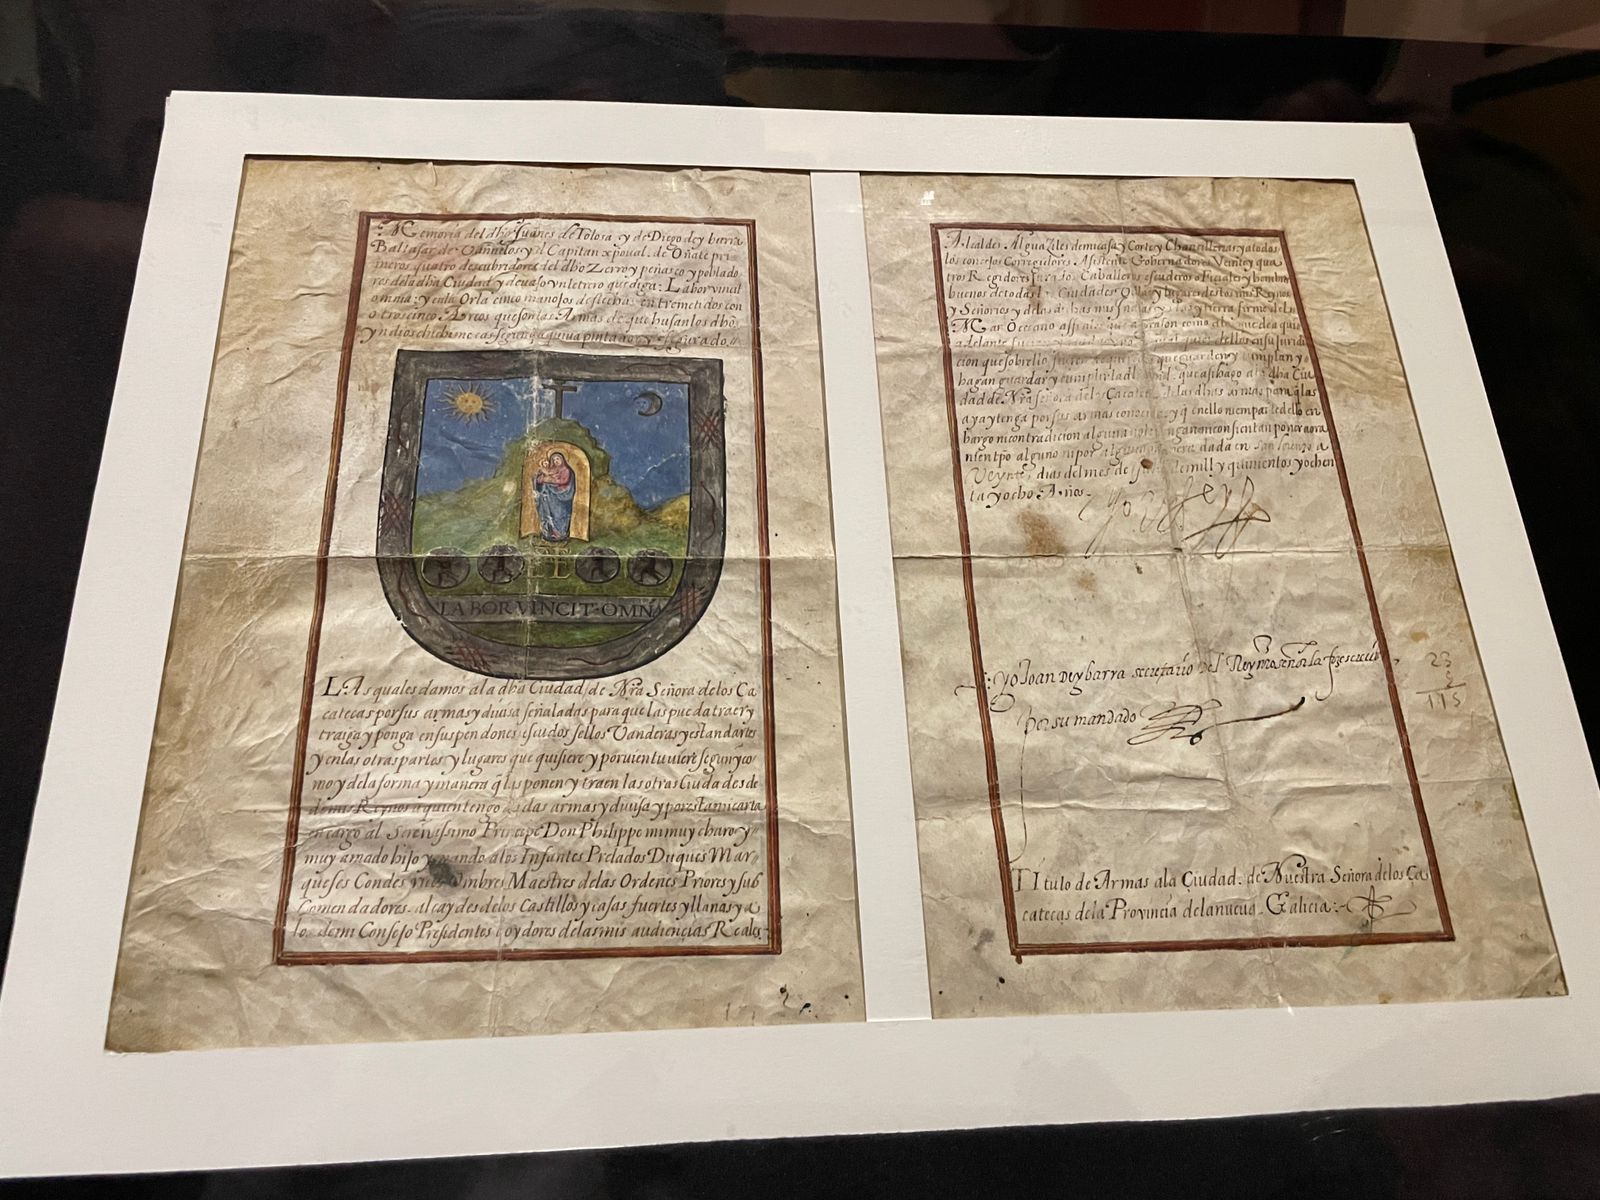 Memoria del dho Juanes de Tolosa y de Diego de ybarra
Baltasar de Vañuelos y el Capitan xpoual. de Oñate pri
meros quatro descubridores del dho Zerro y peñasco y poblado
res de la dha Ciudad y deuaxo vn letrero que diga: Labor vincit
omnia: y en la Orla cinco manojos de flechas entremetidos con
otros cinco Arcos que son las Armas de que husan los dhos
yndios chichimecas segun q aqui ua pintado y figurado
LABOR VINCIT·OMNIA
LAs quales damos a la dha Ciudad de Nra Señora de los Ca
catecas por sus armas y diuisa señaladas para que las pueda traer y
traiga y ponga en sus pendones escudos sellos Vanderas y estandartes
y en las otras partes y lugares que quisiere y por vien tuuiere segun y co
mo y de la forma y manera q las ponen y traen las otras Ciudades de
de mis Reynos a quien tengo dadas armas y diuisa y por esta mi carta
encargo al Serenissimo Principe Don Philippe mi muy charo y
muy amado hijo y mando a los Infantes Prelados Duques Mar
queses Condes Ricos ombres Maestres de las Ordenes Priores y sub
Comendadores. alcaydes de los Castillos y casas fuertes y llanas y a
los de mi Consejo Presidentes y oydores de las mis audiencias Reales
Alcaldes Alguaziles de mi casa y Corte y Chancillerias y a todos
los concejos Corregidores Asistente Gobernadores Veinte y qua
tros Regidores Jurados Caballeros escuderos officiales y hombres
buenos de todas las Ciudades Villas y lugares destos mis Reynos
y Señorios y de las dichas mis Indias Islas y tierra firme del
Mar Oceano assi a los que agora son como a los que de aqui
adelante fueren y a cada vno en su juridi
cion que sobrello fueren requeridos que guarden y cumplan y
hagan guardar y cumplir la dha mrd. que asi hago a la dha Ciu
dad de Nra Señora de los Cacatecas de las dhas armas para q las
aya y tenga por sus armas conocidas y q en ello ni en parte dello en
bargo ni contradicion alguna no le pongan ni consientan poner aora
ni en tpo alguno ni por alguna manera dada en San Lorenzo a
Veynte dias del mes de Jullio de mill y quinientos y ochen
ta y ocho Años.
Yo el Rey
Yo Joan de ybarra secretario del Rey nro señor la fize scriuir
por su mandado
23
5
115
TItulo de Armas a la Ciudad. de Nuestra Señora de los Ca
catecas de la Prouincia de la nueua Galicia